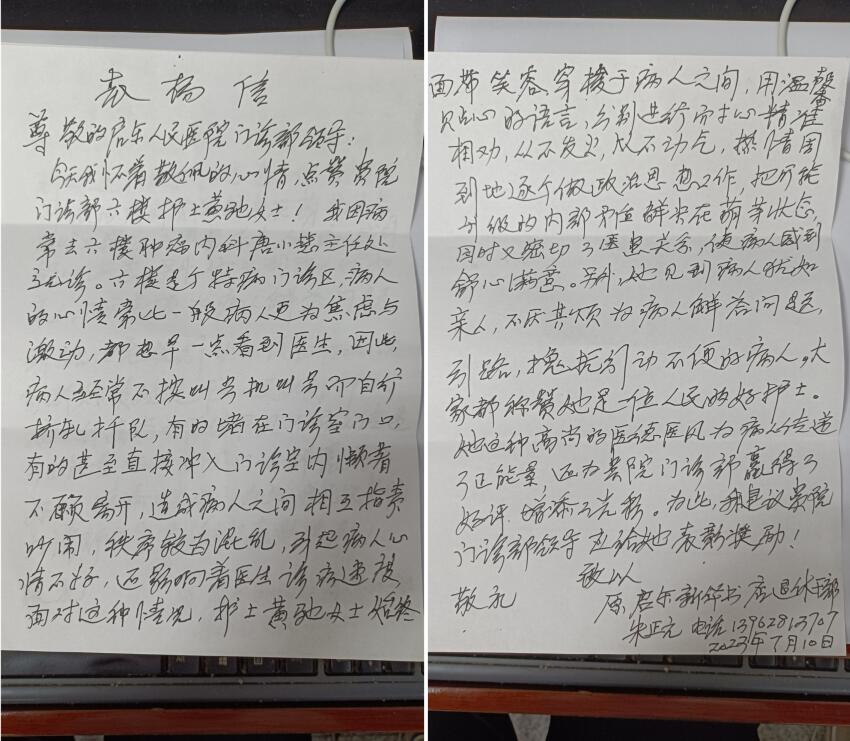 表扬信
尊敬的启东人民医院门诊部领导：
今天我怀着敬佩的心情点赞贵院
门诊部六楼护士黄驰女士！我因病
常去六楼肿瘤内科唐小慧主任处
就诊。六楼是个特病门诊区，病人
的心情需比一般病人更为焦虑与
激动，都想早一点看到医生，因此，
病人经常不按叫号机叫号而自行
挤轧扦队，有的堵在门诊室门口，
有的甚至直接冲入门诊室内懒着
不愿离开，造成病人之间相互指责
吵闹，秩序较为混乱，引起病人心
情不好，还影响着医生诊病速度
面对这种情况，护士黄驰女士始终
面带笑容，穿梭于病人之间，用温馨
贴心的语言，分别进行耐心精准
相劝，从不发火，从不动气，热情周
到地逐个做政治思想工作，把可能
升级的内部矛盾解决在萌芽状态，
同时又密切了医患关系，使病人感到
舒心满意。另外，她见到病人犹如
亲人，不厌其烦为病人解答问题，
引路，搀扶行动不便的病人。大
家都称赞她是一位人民的好护士。
她这种高尚的医德医风为病人传递
了正能量，还为贵院门诊部赢得了
好评，增添了光彩。为此，我建议贵院
门诊部领导应给她表彰奖励！
致以
敬礼
原启东新华书店退休干部
朱正元 电话13962813707
2023年7月10日